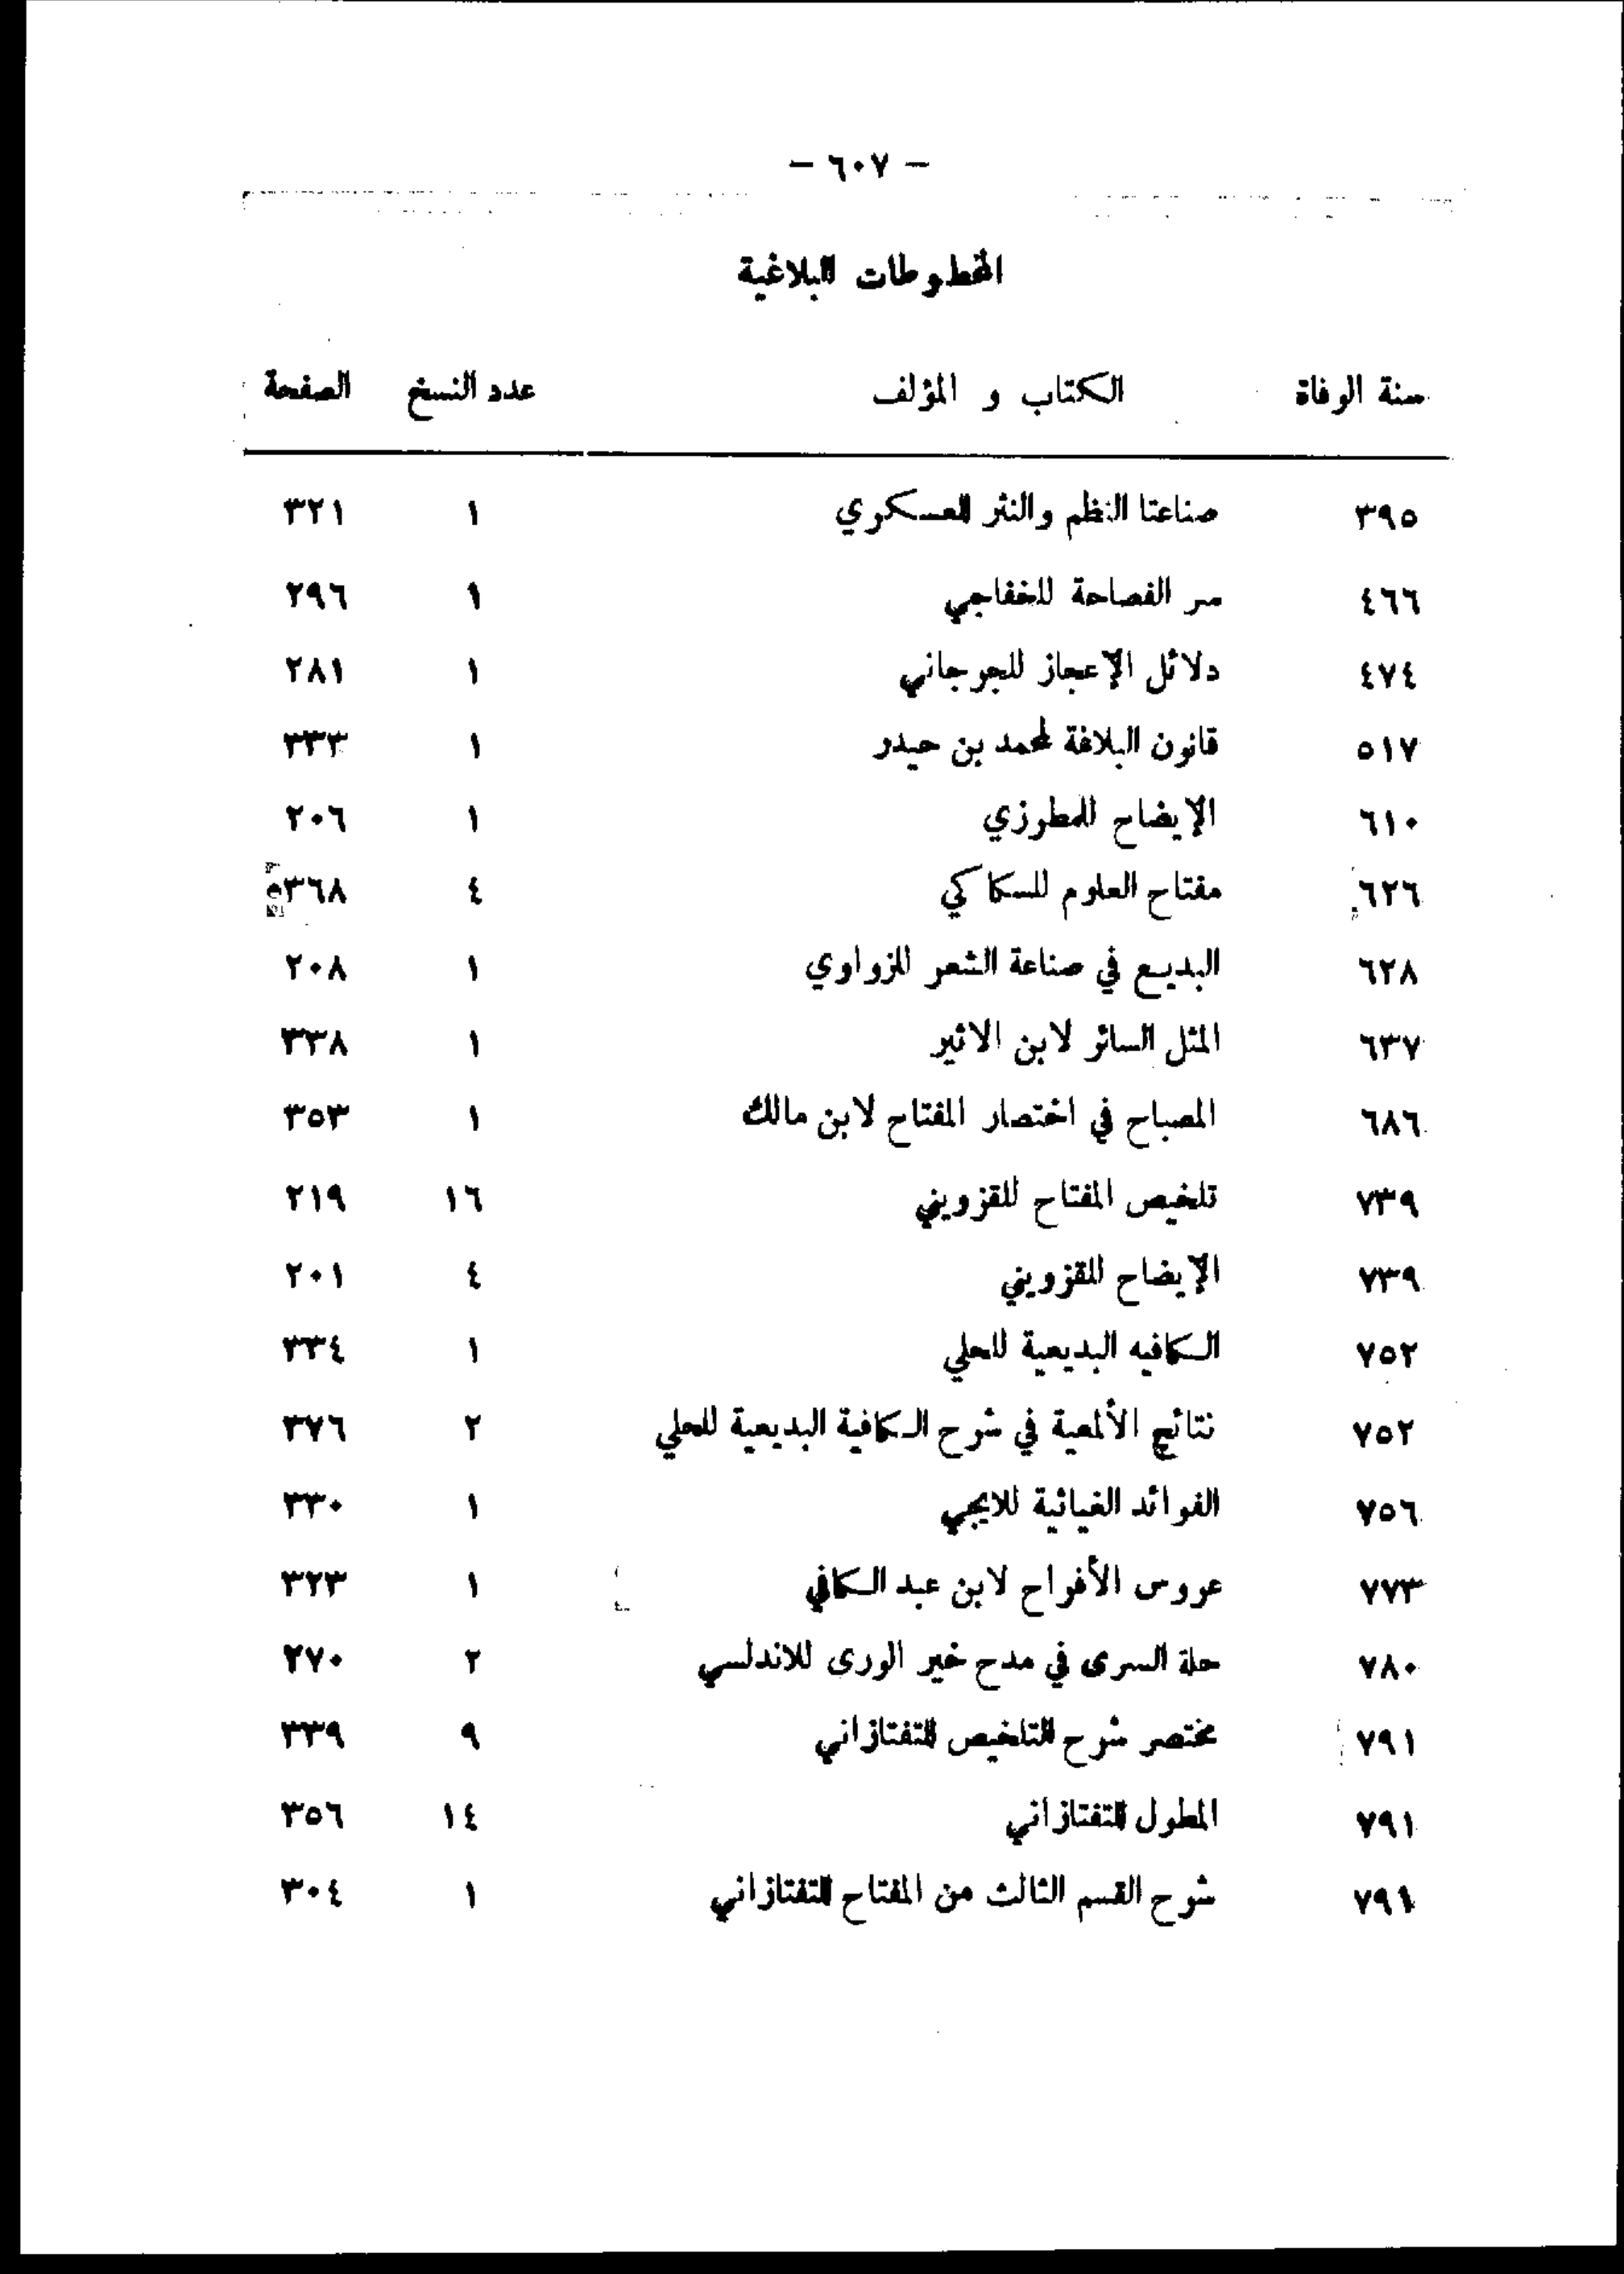 - ٦٠٧ -
المخطوطات البلاغية
سنة الوفاة الكتاب و المؤلف عدد النسخ الصفحة
٣٩٥ صناعتا النظم والنثر للعسكري ١ ٣٢١
٤٦٦ سر الفصاحة للخفاجي ١ ٢٩٦
٤٧٤ دلائل الإعجاز للجرجاني ١ ٢٨١
٥١٧ قانون البلاغة لمحمد بن حيدر ١ ٣٣٣
٦١٠ الإيضاح للمطرزي ١ ٢٠٦
٦٢٦ مفتاح العلوم للسكاكي ٤ ٣٦٨
٦٢٨ البديع في صناعة الشعر للزواوي ١ ٢٠٨
٦٣٧ المثل السائر لابن الاثير ١ ٣٣٨
٦٨٦ المصباح في اختصار المفتاح لابن مالك ١ ٣٥٣
٧٣٩ تلخيص المفتاح للقزويني ١٦ ٢١٩
٧٣٩ الإيضاح للقزويني ٤ ٢٠١
٧٥٢ الكافيه البديعية للحلي ١ ٣٣٤
٧٥٢ نتائج الألمعية في شرح الكافية البديعية للحلي ٢ ٣٧٦
٧٥٦ الفوائد الغياثية للايجي ١ ٣٣٠
٧٧٣ عروس الأفراح لابن عبد الكافي ١ ٣٢٣
٧٨٠ حلة السرى في مدح خير الورى للاندلسي ٢ ٢٧٠
٧٩١ مختصر شرح التلخيص للتفتازاني ٩ ٣٣٩
٧٩١ المطول للتفتازاني ١٤ ٣٥٦
٧٩١ شرح القسم الثالث من المفتاح للتفتازاني ١ ٣٠٤